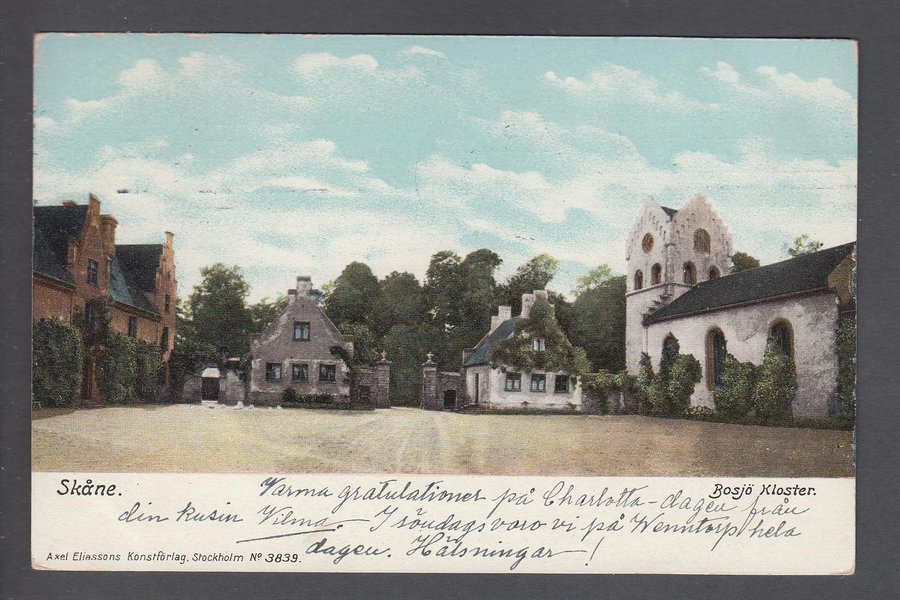 Skåne.
Bosjö Kloster.
Varma gratulationer på Charlotta-dagen från
din kusin Vilma. - I söndags voro vi på Wenntorp hela
dagen. Hälsningar - !
Axel Eliassons Konstförlag, Stockholm Nº 3839.